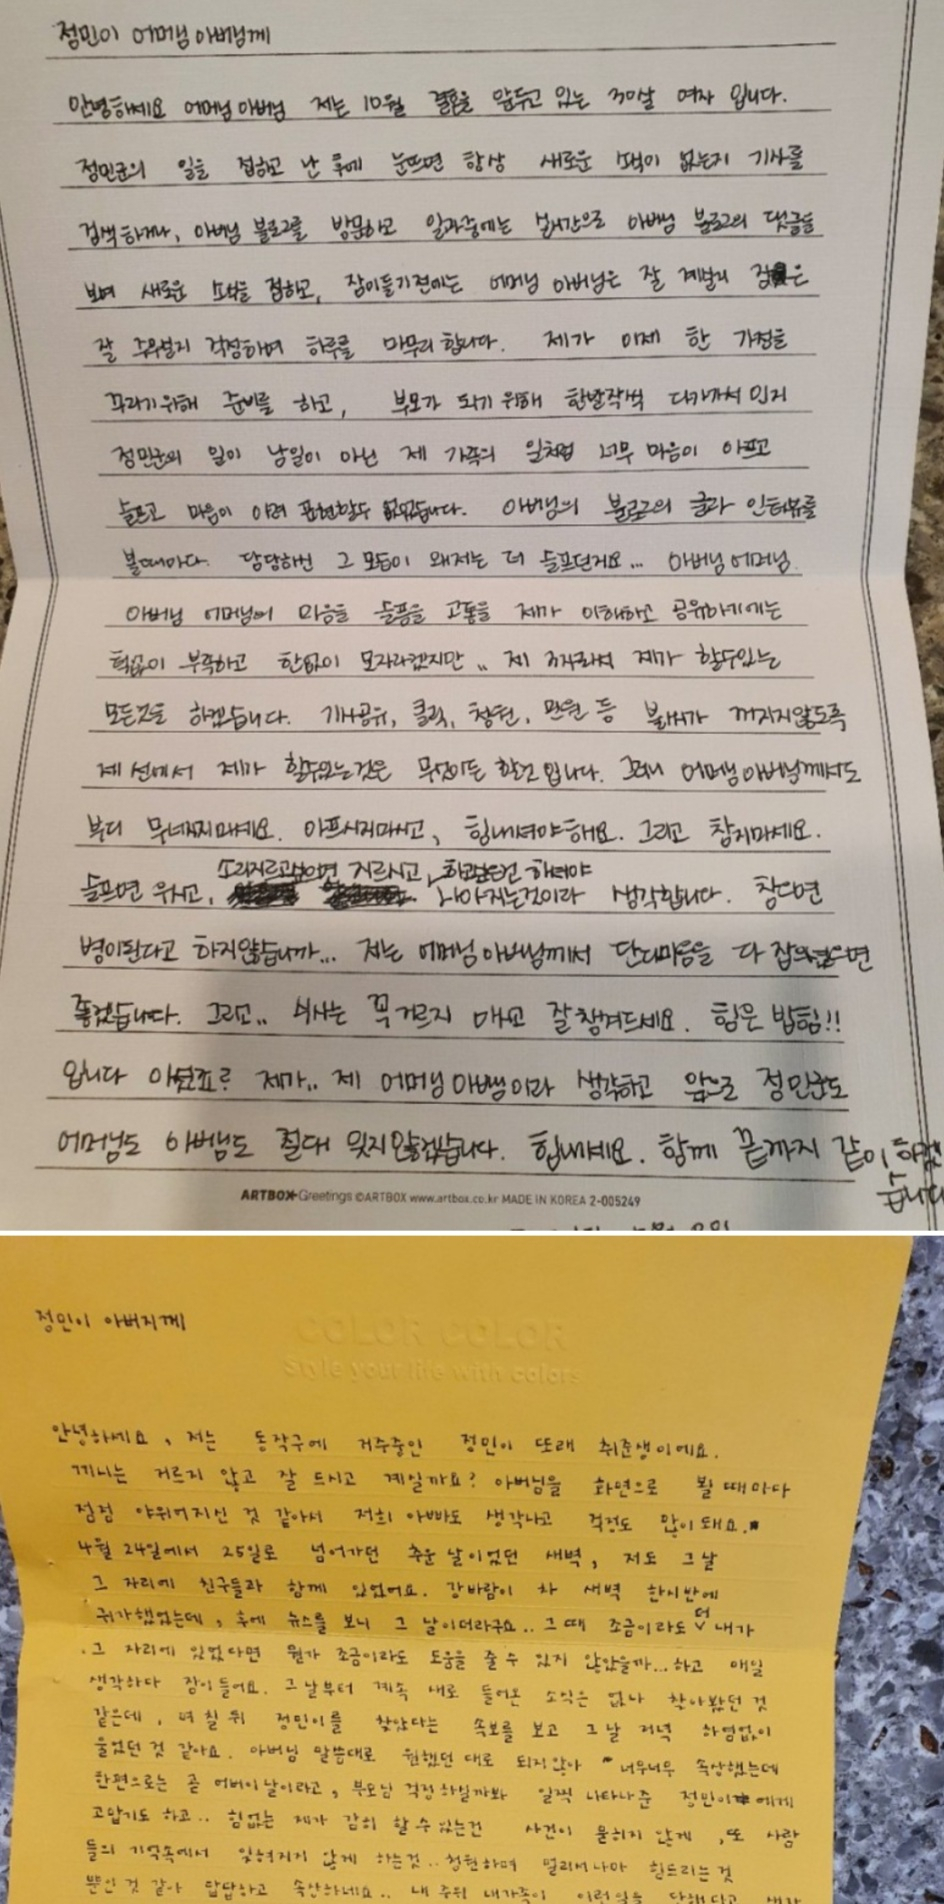 정민이 어머님 아버님께
안녕하세요 어머님 아버님 저는 10월 결혼을 앞두고 있는 30살 여자 입니다.
정민군의 일을 접하고 난 후에 눈뜨면 항상 새로운 소식이 없는지 기사를
검색하거나, 아버님 블로그를 방문하고 일과중에는 실시간으로 아버님 블로그의 댓글을
보며 새로운 소식을 접하고, 잠이들기전에는 어머님 아버님은 잘 계실지 잠은
잘 주무실지 걱정하며 하루를 마무리 합니다. 제가 이제 한 가정을
꾸리기위해 준비를 하고, 부모가 되기 위해 한발작씩 다가가서 인지
정민군의 일이 남일이 아닌 제 가족의 일처럼 너무 마음이 아프고
슬프고 마음이 아려 표현할수 없었습니다. 아버님의 블로그의 글과 인터뷰를
볼때마다. 담담하신 그 모습이 왜저는 더 슬프던지요... 아버님 어머님.
아버님 어머님의 마음을 슬픔을 고통을 제가 이해하고 공유하기에는
턱없이 부족하고 한없이 모자라겠지만.. 제 자리에서 제가 할수있는
모든것을 하겠습니다. 기사공유, 클릭, 청원, 민원 등 불씨가 꺼지지않도록
제 선에서 제가 할수있는것은 무엇이든 할것 입니다. 그러니 어머님 아버님께서도
부디 무너지지마세요. 아프시지마시고, 힘내셔야해요. 그리고 참지마세요.
슬프면 우시고, 소리지르고싶으면 지르시고, 하셔야 나아지는것이라 생각합니다. 참다면
병이된다고 하지않습니까... 저는 어머님 아버님께서 마음을 다 잡으셨으면
좋겠습니다. 그리고.. 식사는 꼭 거르지 마시고 잘 챙겨드세요. 힘은 밥힘!!
입니다 아셨죠? 제가.. 제 어머님 아버님이라 생각하고 앞으로 정민군도
어머님도 아버님도 절대 잊지않겠습니다. 힘내세요. 함께 끝까지 같이 하겠
습니다
ARTBOX Greetings ©ARTBOX www.artbox.co.kr MADE IN KOREA 2-005249
정민이 아버지께
COLOR COLOR
Style your life with colors
안녕하세요, 저는 동작구에 거주중인 정민이 또래 취준생이에요.
끼니는 거르지 않고 잘 드시고 계실까요? 아버님을 화면으로 뵐 때마다
점점 야위어지신 것 같아서 저희 아빠도 생각나고 걱정도 많이 돼요.
4월 24일에서 25일로 넘어가던 추운 날이었던 새벽, 저도 그날
그 자리에 친구들과 함께 있었어요. 강바람이 차 새벽 한시반에
귀가했었는데, 후에 뉴스를 보니 그 날이더라구요.. 그 때 조금이라도 더 내가
그 자리에 있었다면 뭔가 조금이라도 도움을 줄 수 있지 않았을까... 하고 매일
생각하다 잠이 들어요. 그날부터 계속 새로 들어온 소식은 없나 찾아봤던 것
같은데, 며칠 뒤 정민이를 찾았다는 속보를 보고 그날 저녁 하염없이
울었던 것 같아요. 아버님 말씀대로 원했던 대로 되지 않아 너무너무 속상했는데
한편으로는 곧 어버이날이라고, 부모님 걱정하실까봐 일찍 나타나준 정민이에게
고맙기도 하고.. 힘없는 제가 감히 할 수 있는건 사건이 묻히지 않게, 또 사람
들의 기억속에서 잊혀지지 않게 하는것.. 청원하며 멀리서나마 힘드리는것
뿐인 것 같아 답답하고 속상하네요.. 내 주위 내가족이 이런일을 당했다고 생각